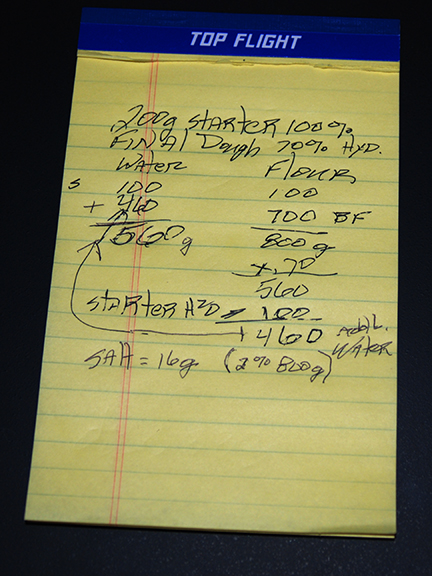 TOP FLIGHT
200g STARTER 100%
FINAl Dough 70% HYD.
WATER FlOUR
S 100 100
+ 460 700 BF
560g 800g
x.70
560
STARTER H2O - 100
+ 460 Addl. WATER
SAlt = 16g (2% 800g)